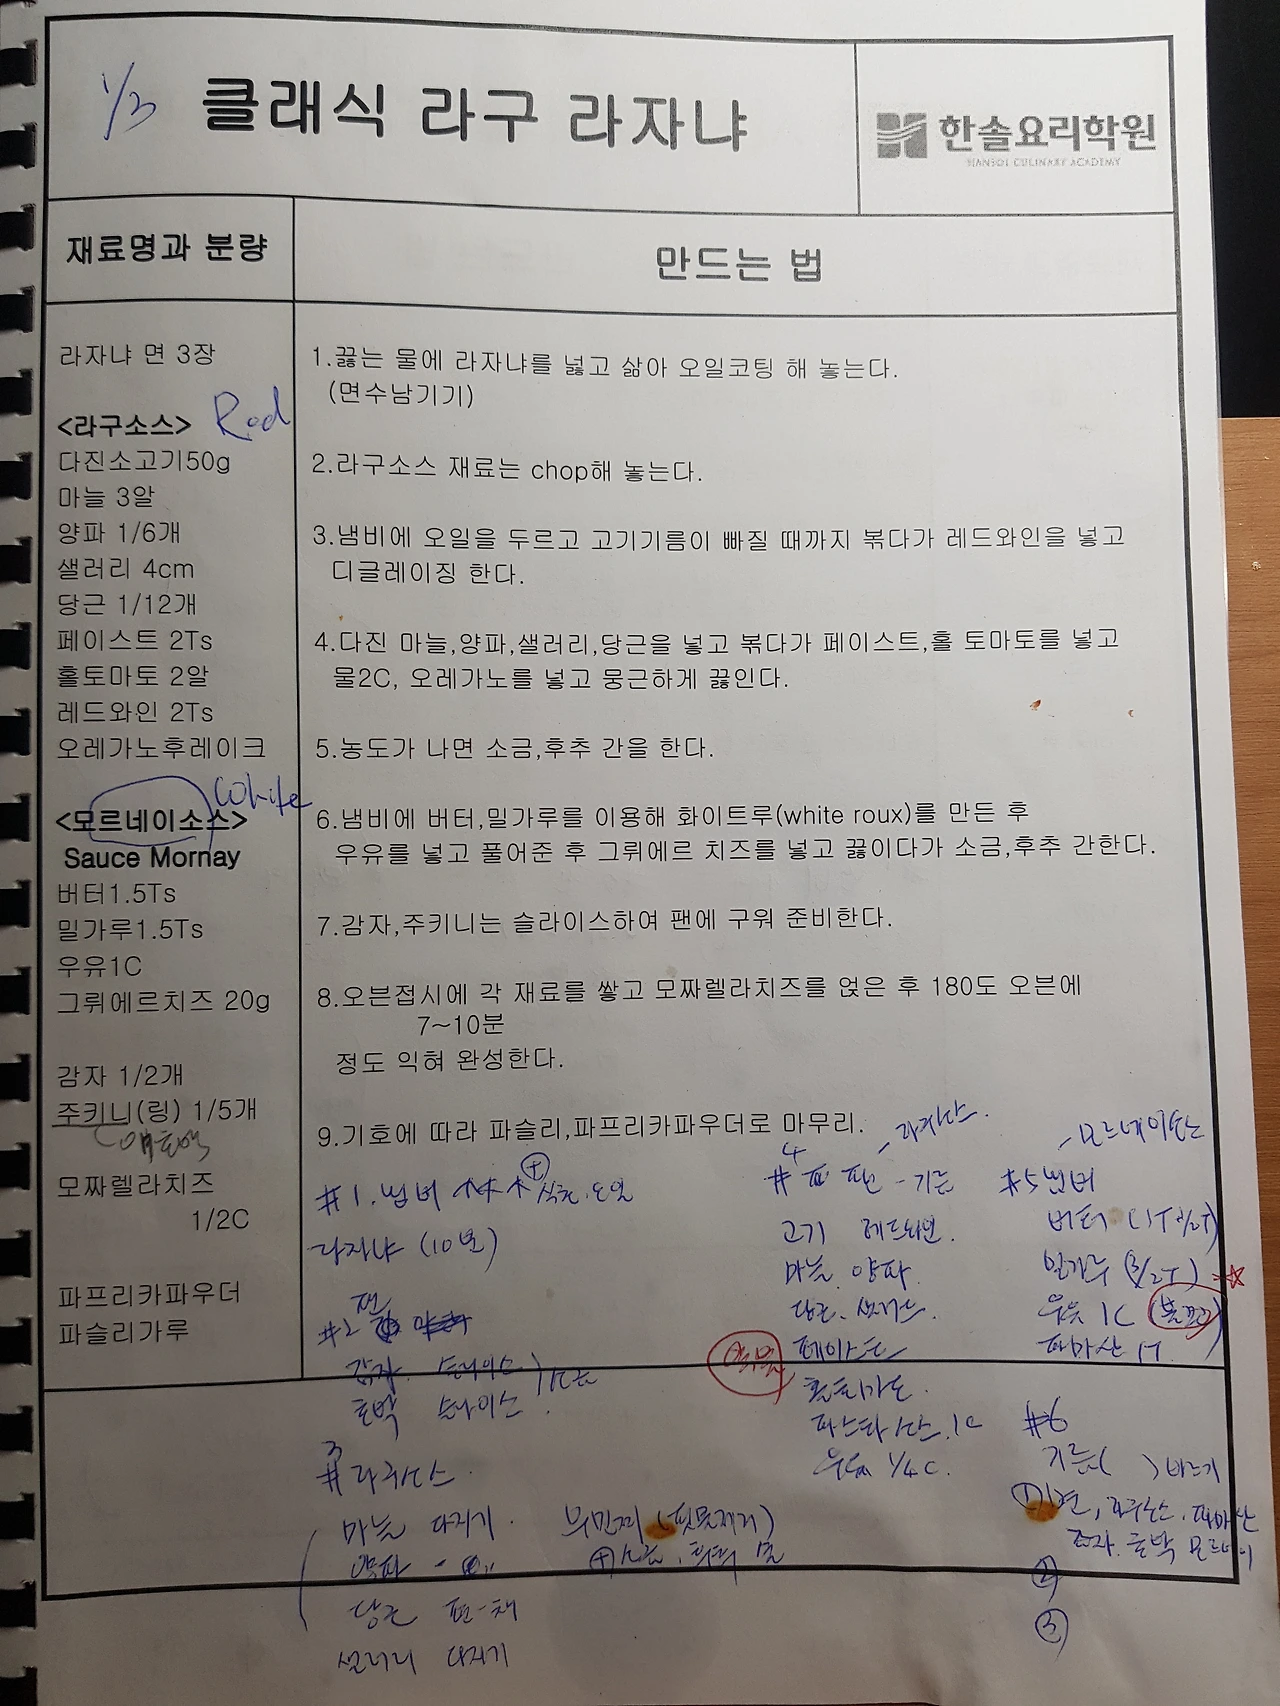 1/3
클래식 라구 라자냐
한솔요리학원
HANSOL CULINARY ACADEMY
재료명과 분량
만드는 법
라자냐 면 3장
<라구소스> Red
다진소고기50g
마늘 3알
양파 1/6개
샐러리 4cm
당근 1/12개
페이스트 2Ts
홀토마토 2알
레드와인 2Ts
오레가노후레이크
White
<모르네이소스>
Sauce Mornay
버터1.5Ts
밀가루1.5Ts
우유1C
그뤼에르치즈 20g
감자 1/2개
주키니(링) 1/5개
애호박
모짜렐라치즈
1/2C
파프리카파우더
파슬리가루
1.끓는 물에 라자냐를 넣고 삶아 오일코팅 해 놓는다.
(면수남기기)
2.라구소스 재료는 chop해 놓는다.
3.냄비에 오일을 두르고 고기기름이 빠질 때까지 볶다가 레드와인을 넣고
디글레이징 한다.
4.다진 마늘,양파,샐러리,당근을 넣고 볶다가 페이스트,홀 토마토를 넣고
물2C, 오레가노를 넣고 뭉근하게 끓인다.
5.농도가 나면 소금,후추 간을 한다.
6.냄비에 버터,밀가루를 이용해 화이트루(white roux)를 만든 후
우유를 넣고 풀어준 후 그뤼에르 치즈를 넣고 끓이다가 소금,후추 간한다.
7.감자,주키니는 슬라이스하여 팬에 구워 준비한다.
8.오븐접시에 각 재료를 쌓고 모짜렐라치즈를 얹은 후 180도 오븐에
7~10분
정도 익혀 완성한다.
9.기호에 따라 파슬리,파프리카파우더로 마무리.
#1. 냄비
라자냐 (10분)
#2 팬
감자 슬라이스
호박 슬라이스
#3 라구소스
마늘 다지기
양파
당근 편-채
샐러리 다지기
#4 팬 - 기름
고기 레드와인.
마늘 양파
당근. 샐러드.
페이스트
홀토마토.
1C
우유 1/4C.
- 모르네이소스
#5 냄비
버터
밀가루 (3/2T)
우유 1C
파마산 1T
#6
기름( ) 바르기
① 면, 라구소스. 파마산
감자. 호박 모르네이
②
③